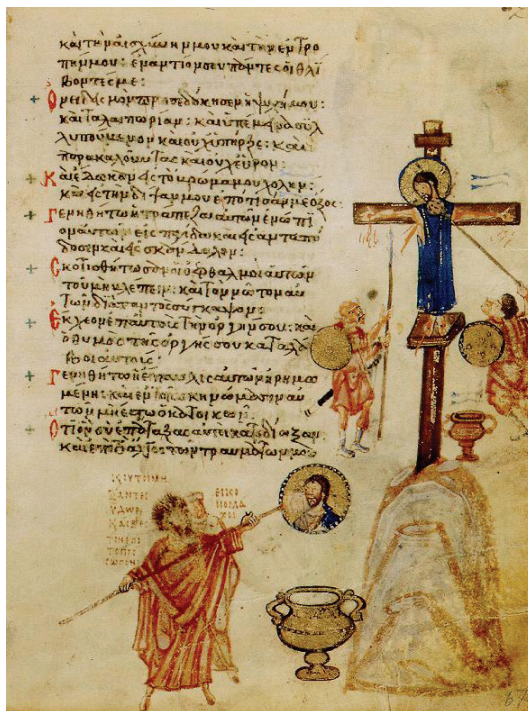 και την αισχυνην μου και την εντρο
πην μου: εναντιον σου παντες οι θλι
βοντες με:
Ονειδισμον προσεδοκησεν η ψυχη μου:
και ταλαιπωριαν: και υπεμεινα συλ
λυπουμενον και ουχ υπηρξε: και
παρακαλουντας και ουχ ευρον:
Και εδωκαν εις το βρωμα μου χολην:
και εις την διψαν μου εποτισαν με οξος:
Γενηθητω η τραπεζα αυτων ενωπι
ον αυτων εις παγιδα και εις ανταπο
δοσιν και εις σκανδαλον:
Σκοτισθητωσαν οι οφθαλμοι αυτων
του μη βλεπειν: και τον νωτον αυ
των δια παντος συγκαμψον:
Εκχεον επ αυτους την οργην σου: και
ο θυμος της οργης σου καταλα
βοι αυτους:
Γενηθητω η επαυλις αυτων ηρημω
μενη: και εν τοις σκηνωμασιν αυ
των μη εστω ο κατοικων:
Οτι ον συ επαταξας αυτοι κατεδιωξαν
και επι το αλγος των τραυματιων μου
ΕΙΚΟ
ΝΟΜΑ
ΧΟΙ
67